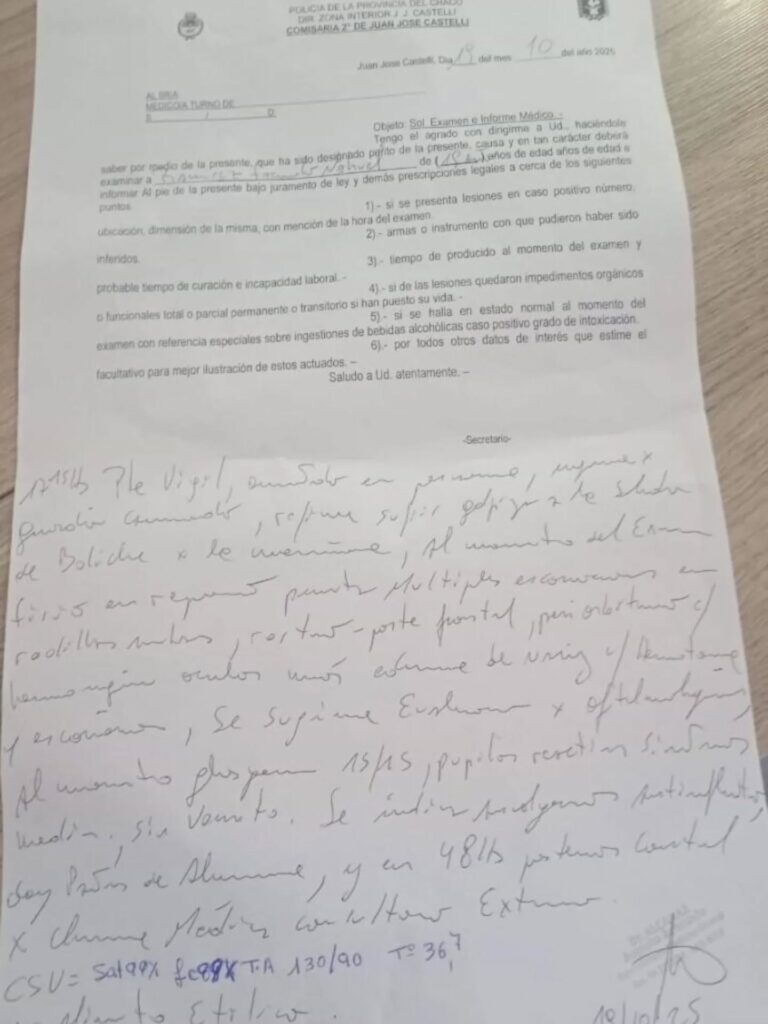 POLICIA DE LA PROVINCIA DEL CHACO
DIR. ZONA INTERIOR J. J. CASTELLI
COMISARIA 2° DE JUAN JOSE CASTELLI
Juan Jose Castelli, Dia 19 del mes 10 del año 2025
AL SR/A
MEDICO/A TURNO DE
S / D:
Objeto: Sol. Examen e Informe Médico.-
Tengo el agrado con dirigirme a Ud., haciéndole
saber por medio de la presente, que ha sido designado perito de la presente, causa y en tan carácter deberá
examinar a de ( ) años de edad años de edad e
informar Al pie de la presente bajo juramento de ley y demás prescripciones legales a cerca de los siguientes
puntos.
1).- si se presenta lesiones en caso positivo número,
ubicación, dimensión de la misma, con mención de la hora del examen.
2).- armas o instrumento con que pudieron haber sido
inferidos.
3).- tiempo de producido al momento del examen y
probable tiempo de curación e incapacidad laboral. -
4).- si de las lesiones quedaron impedimentos orgánicos
o funcionales total o parcial permanente o transitorio si han puesto su vida. -
5).- si se halla en estado normal al momento del
examen con referencia especiales sobre ingestiones de bebidas alcohólicas caso positivo grado de intoxicación.
6).- por todos otros datos de interés que estime el
facultativo para mejor ilustración de estos actuados. –
Saludo a Ud. atentamente. –
-Secretario-
Pte Vigil, en persona, ingresa x
guardia , refiere sufrir a la salida
de Boliche x la mañana, Al momento del Examen
físico en presenta Multiples escoriaciones en
rodillas ambas, rostro - parte frontal, periorbitario c/
hemorragia edema de nariz c/ hematoma
y escoriaciones, Se sugiere Evaluacion x oftalmologia,
Al momento glasgow 15/15, pupilas reactivas
, sin Vomito. Se indica antiinflamatorio,
de Alarma, y en 48hs control
x Consultorio Externo.
CSV= Sat 99% T.A 130/90 T° 36,7
Aliento Etilico.
19/10/25